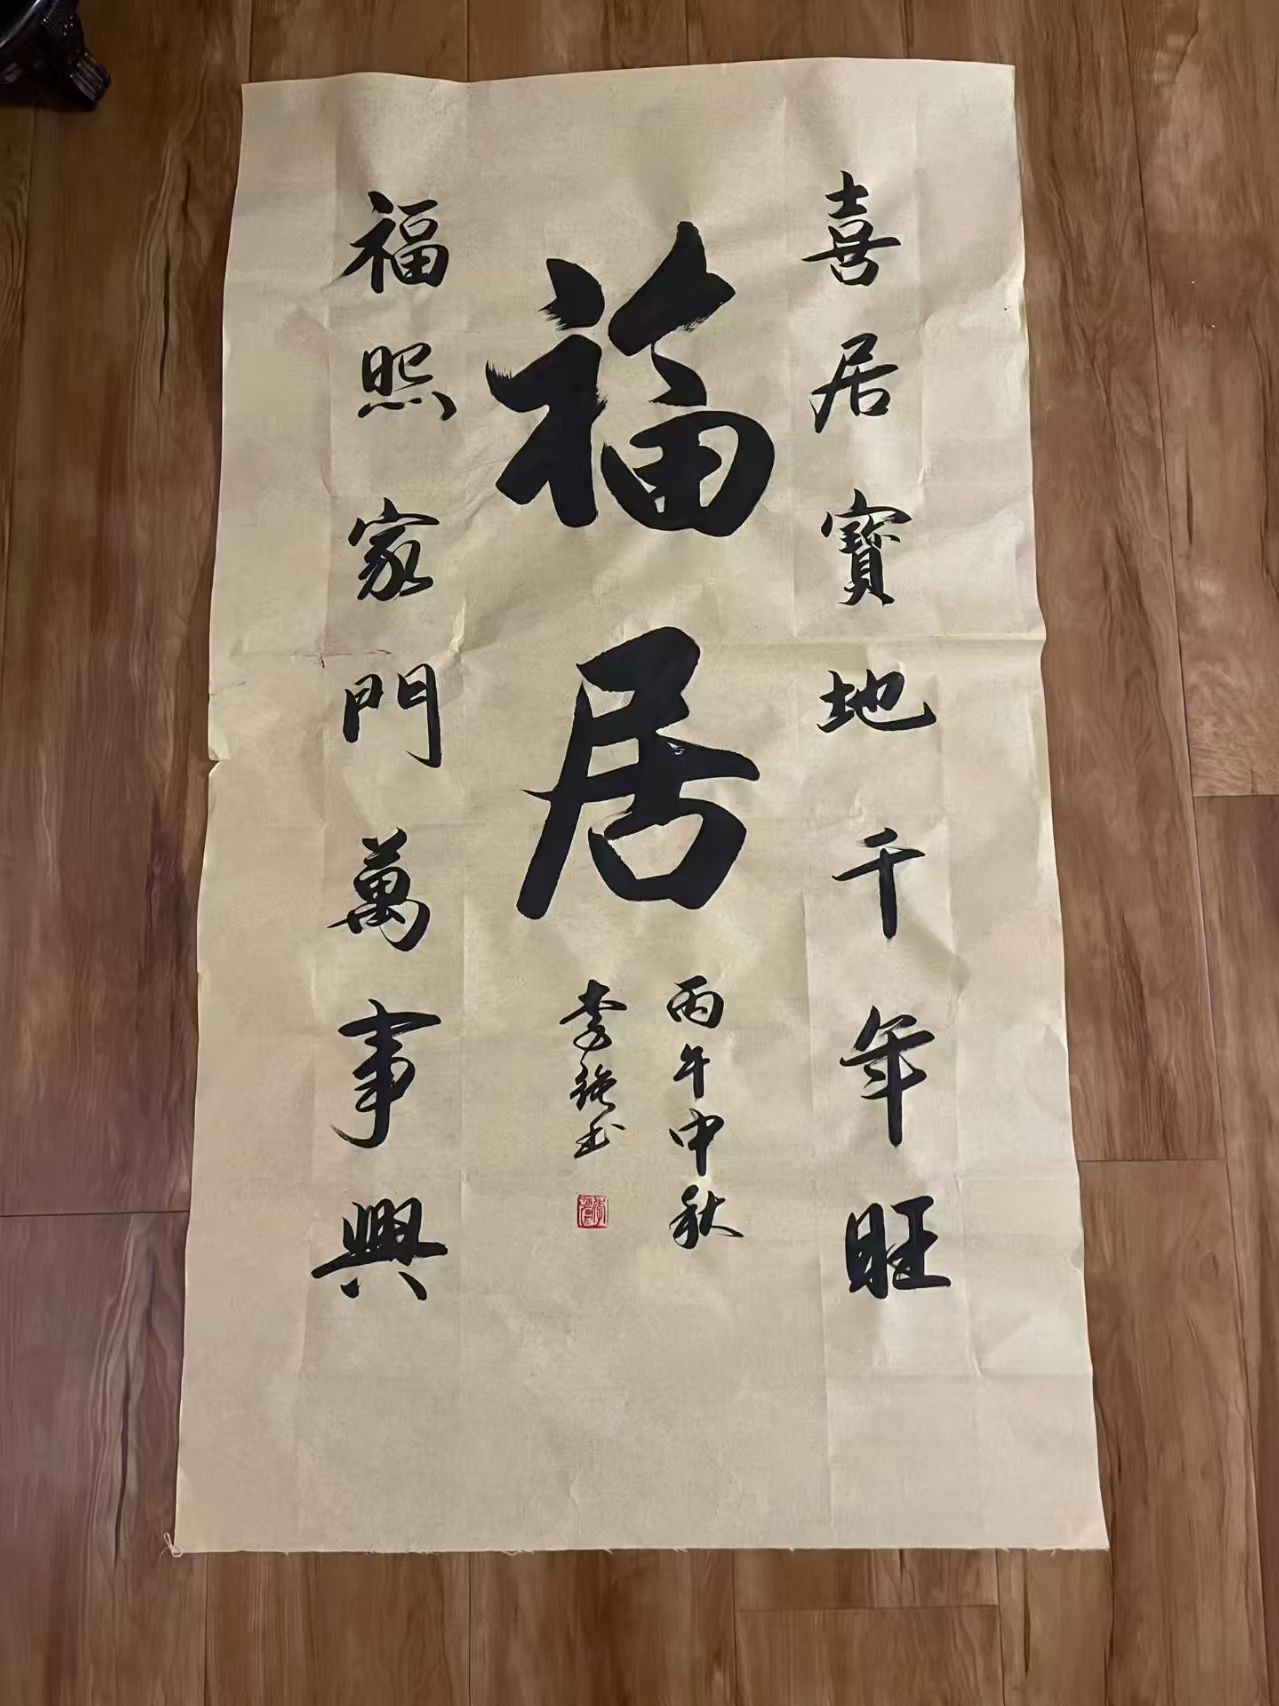 喜居寶地千年旺
福居
丙午中秋
李强书
福照家門萬事興